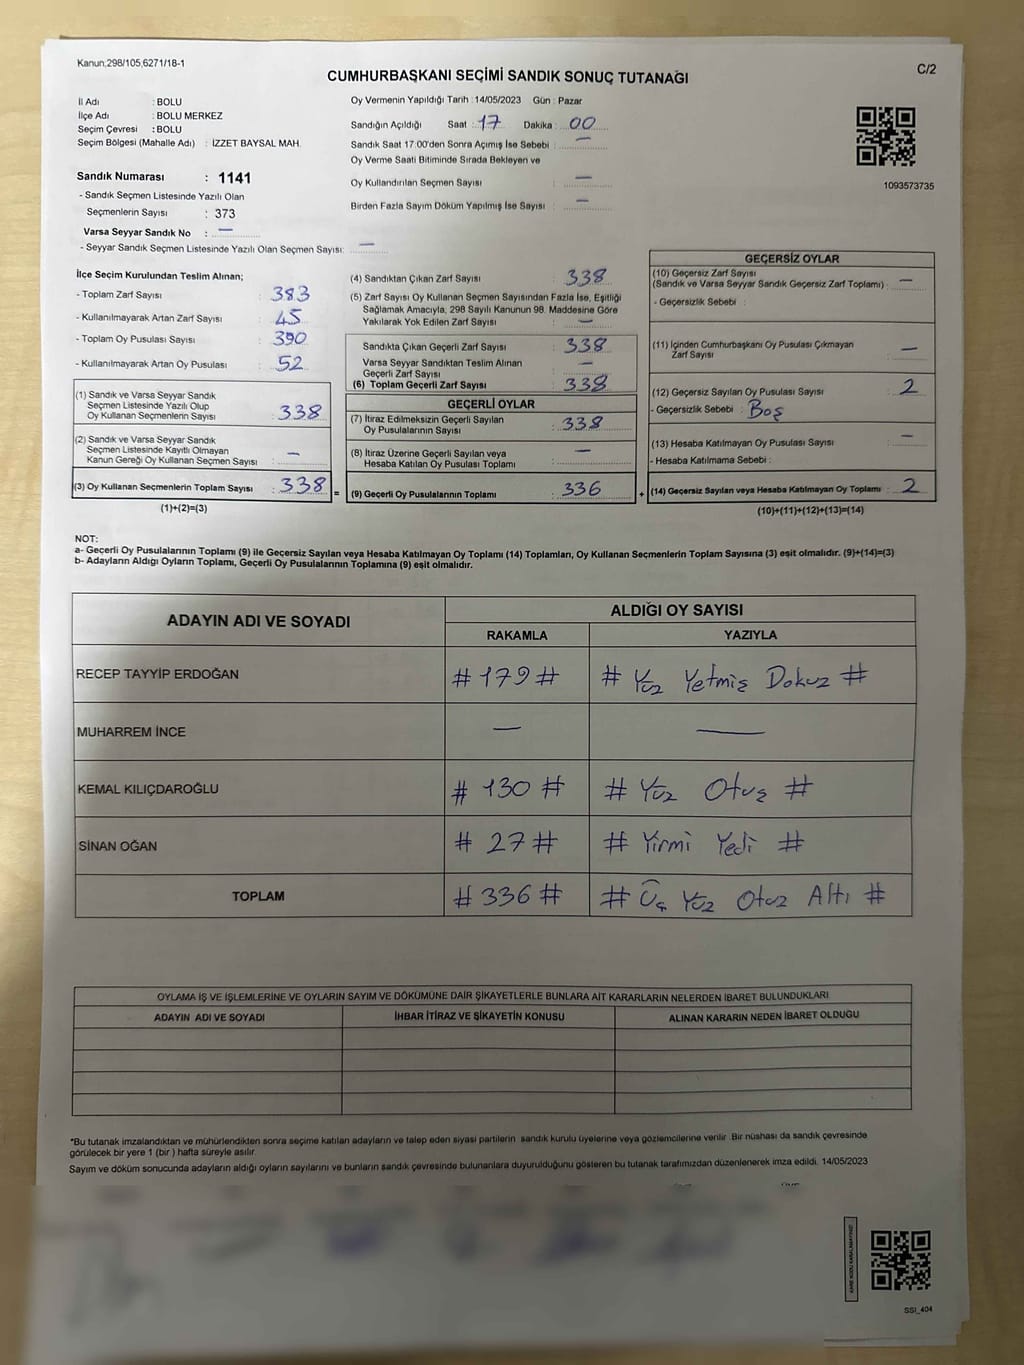 Kanun,298/105,6271/18-1
CUMHURBAŞKANI SEÇİMİ SANDIK SONUÇ TUTANAĞI
C/2
İl Adı : BOLU
İlçe Adı : BOLU MERKEZ
Seçim Çevresi : BOLU
Seçim Bölgesi (Mahalle Adı) : İZZET BAYSAL MAH.
Oy Vermenin Yapıldığı Tarih :14/05/2023 Gün : Pazar
Sandığın Açıldığı Saat : 17 Dakika : 00
Sandık Saat 17:00'den Sonra Açımış İse Sebebi : —
Oy Verme Saati Bitiminde Sırada Bekleyen ve
Oy Kullandırılan Seçmen Sayısı : —
Birden Fazla Sayım Döküm Yapılmış İse Sayısı : —
1093573735
Sandık Numarası : 1141
- Sandık Seçmen Listesinde Yazılı Olan
Seçmenlerin Sayısı : 373
Varsa Seyyar Sandık No : —
- Seyyar Sandık Seçmen Listesinde Yazılı Olan Seçmen Sayısı: —
İlçe Seçim Kurulundan Teslim Alınan;
- Toplam Zarf Sayısı : 383
- Kullanılmayarak Artan Zarf Sayısı : 45
- Toplam Oy Pusulası Sayısı : 390
- Kullanılmayarak Artan Oy Pusulası : 52
(1) Sandık ve Varsa Seyyar Sandık
Seçmen Listesinde Yazılı Olup
Oy Kullanan Seçmenlerin Sayısı : 338
(2) Sandık ve Varsa Seyyar Sandık
Seçmen Listesinde Kayıtlı Olmayan
Kanun Gereği Oy Kullanan Seçmen Sayısı : —
(3) Oy Kullanan Seçmenlerin Toplam Sayısı : 338 =
(1)+(2)=(3)
(4) Sandıktan Çıkan Zarf Sayısı : 338
(5) Zarf Sayısı Oy Kullanan Seçmen Sayısından Fazla İse, Eşitliği
Sağlamak Amacıyla, 298 Sayılı Kanunun 98. Maddesine Göre
Yakılarak Yok Edilen Zarf Sayısı : —
Sandıkta Çıkan Geçerli Zarf Sayısı : 338
Varsa Seyyar Sandıktan Teslim Alınan
Geçerli Zarf Sayısı : —
(6) Toplam Geçerli Zarf Sayısı : 338
GEÇERLİ OYLAR
(7) İtiraz Edilmeksizin Geçerli Sayılan
Oy Pusulalarının Sayısı : 338
(8) İtiraz Üzerine Geçerli Sayılan veya
Hesaba Katılan Oy Pusulası Toplamı : —
(9) Geçerli Oy Pusulalarının Toplamı : 336 +
GEÇERSİZ OYLAR
(10) Geçersiz Zarf Sayısı
(Sandık ve Varsa Seyyar Sandık Geçersiz Zarf Toplamı) : —
- Geçersizlik Sebebi :
(11) İçinden Cumhurbaşkanı Oy Pusulası Çıkmayan
Zarf Sayısı : —
(12) Geçersiz Sayılan Oy Pusulası Sayısı : 2
- Geçersizlik Sebebi : Boş
(13) Hesaba Katılmayan Oy Pusulası Sayısı : —
- Hesaba Katılmama Sebebi :
(14) Geçersiz Sayılan veya Hesaba Katılmayan Oy Toplamı : 2
(10)+(11)+(12)+(13)=(14)
NOT:
a- Geçerli Oy Pusulalarının Toplamı (9) ile Geçersiz Sayılan veya Hesaba Katılmayan Oy Toplamı (14) Toplamları, Oy Kullanan Seçmenlerin Toplam Sayısına (3) eşit olmalıdır. (9)+(14)=(3)
b- Adayların Aldığı Oyların Toplamı, Geçerli Oy Pusulalarının Toplamına (9) eşit olmalıdır.
ADAYIN ADI VE SOYADI
ALDIĞI OY SAYISI
RAKAMLA YAZIYLA
RECEP TAYYİP ERDOĞAN # 179 # # Yüz Yetmiş Dokuz #
MUHARREM İNCE — —
KEMAL KILIÇDAROĞLU # 130 # # Yüz Otuz #
SİNAN OĞAN # 27 # # Yirmi Yedi #
TOPLAM # 336 # # Üç Yüz Otuz Altı #
OYLAMA İŞ VE İŞLEMLERİNE VE OYLARIN SAYIM VE DÖKÜMÜNE DAİR ŞİKAYETLERLE BUNLARA AİT KARARLARIN NELERDEN İBARET BULUNDUKLARI
ADAYIN ADI VE SOYADI İHBAR İTİRAZ VE ŞİKAYETİN KONUSU ALINAN KARARIN NEDEN İBARET OLDUĞU
*Bu tutanak imzalandıktan ve mühürlendikten sonra seçime katılan adayların ve talep eden siyasi partilerin sandık kurulu üyelerine veya gözlemcilerine verilir. Bir nüshası da sandık çevresinde
görülecek bir yere 1 (bir ) hafta süreyle asılır.
Sayım ve döküm sonucunda adayların aldığı oyların sayılarını ve bunların sandık çevresinde bulunanlara duyurulduğunu gösteren bu tutanak tarafımızdan düzenlenerek imza edildi. 14/05/2023
KARE KODU KARALAMAYINIZ!
SSI_404